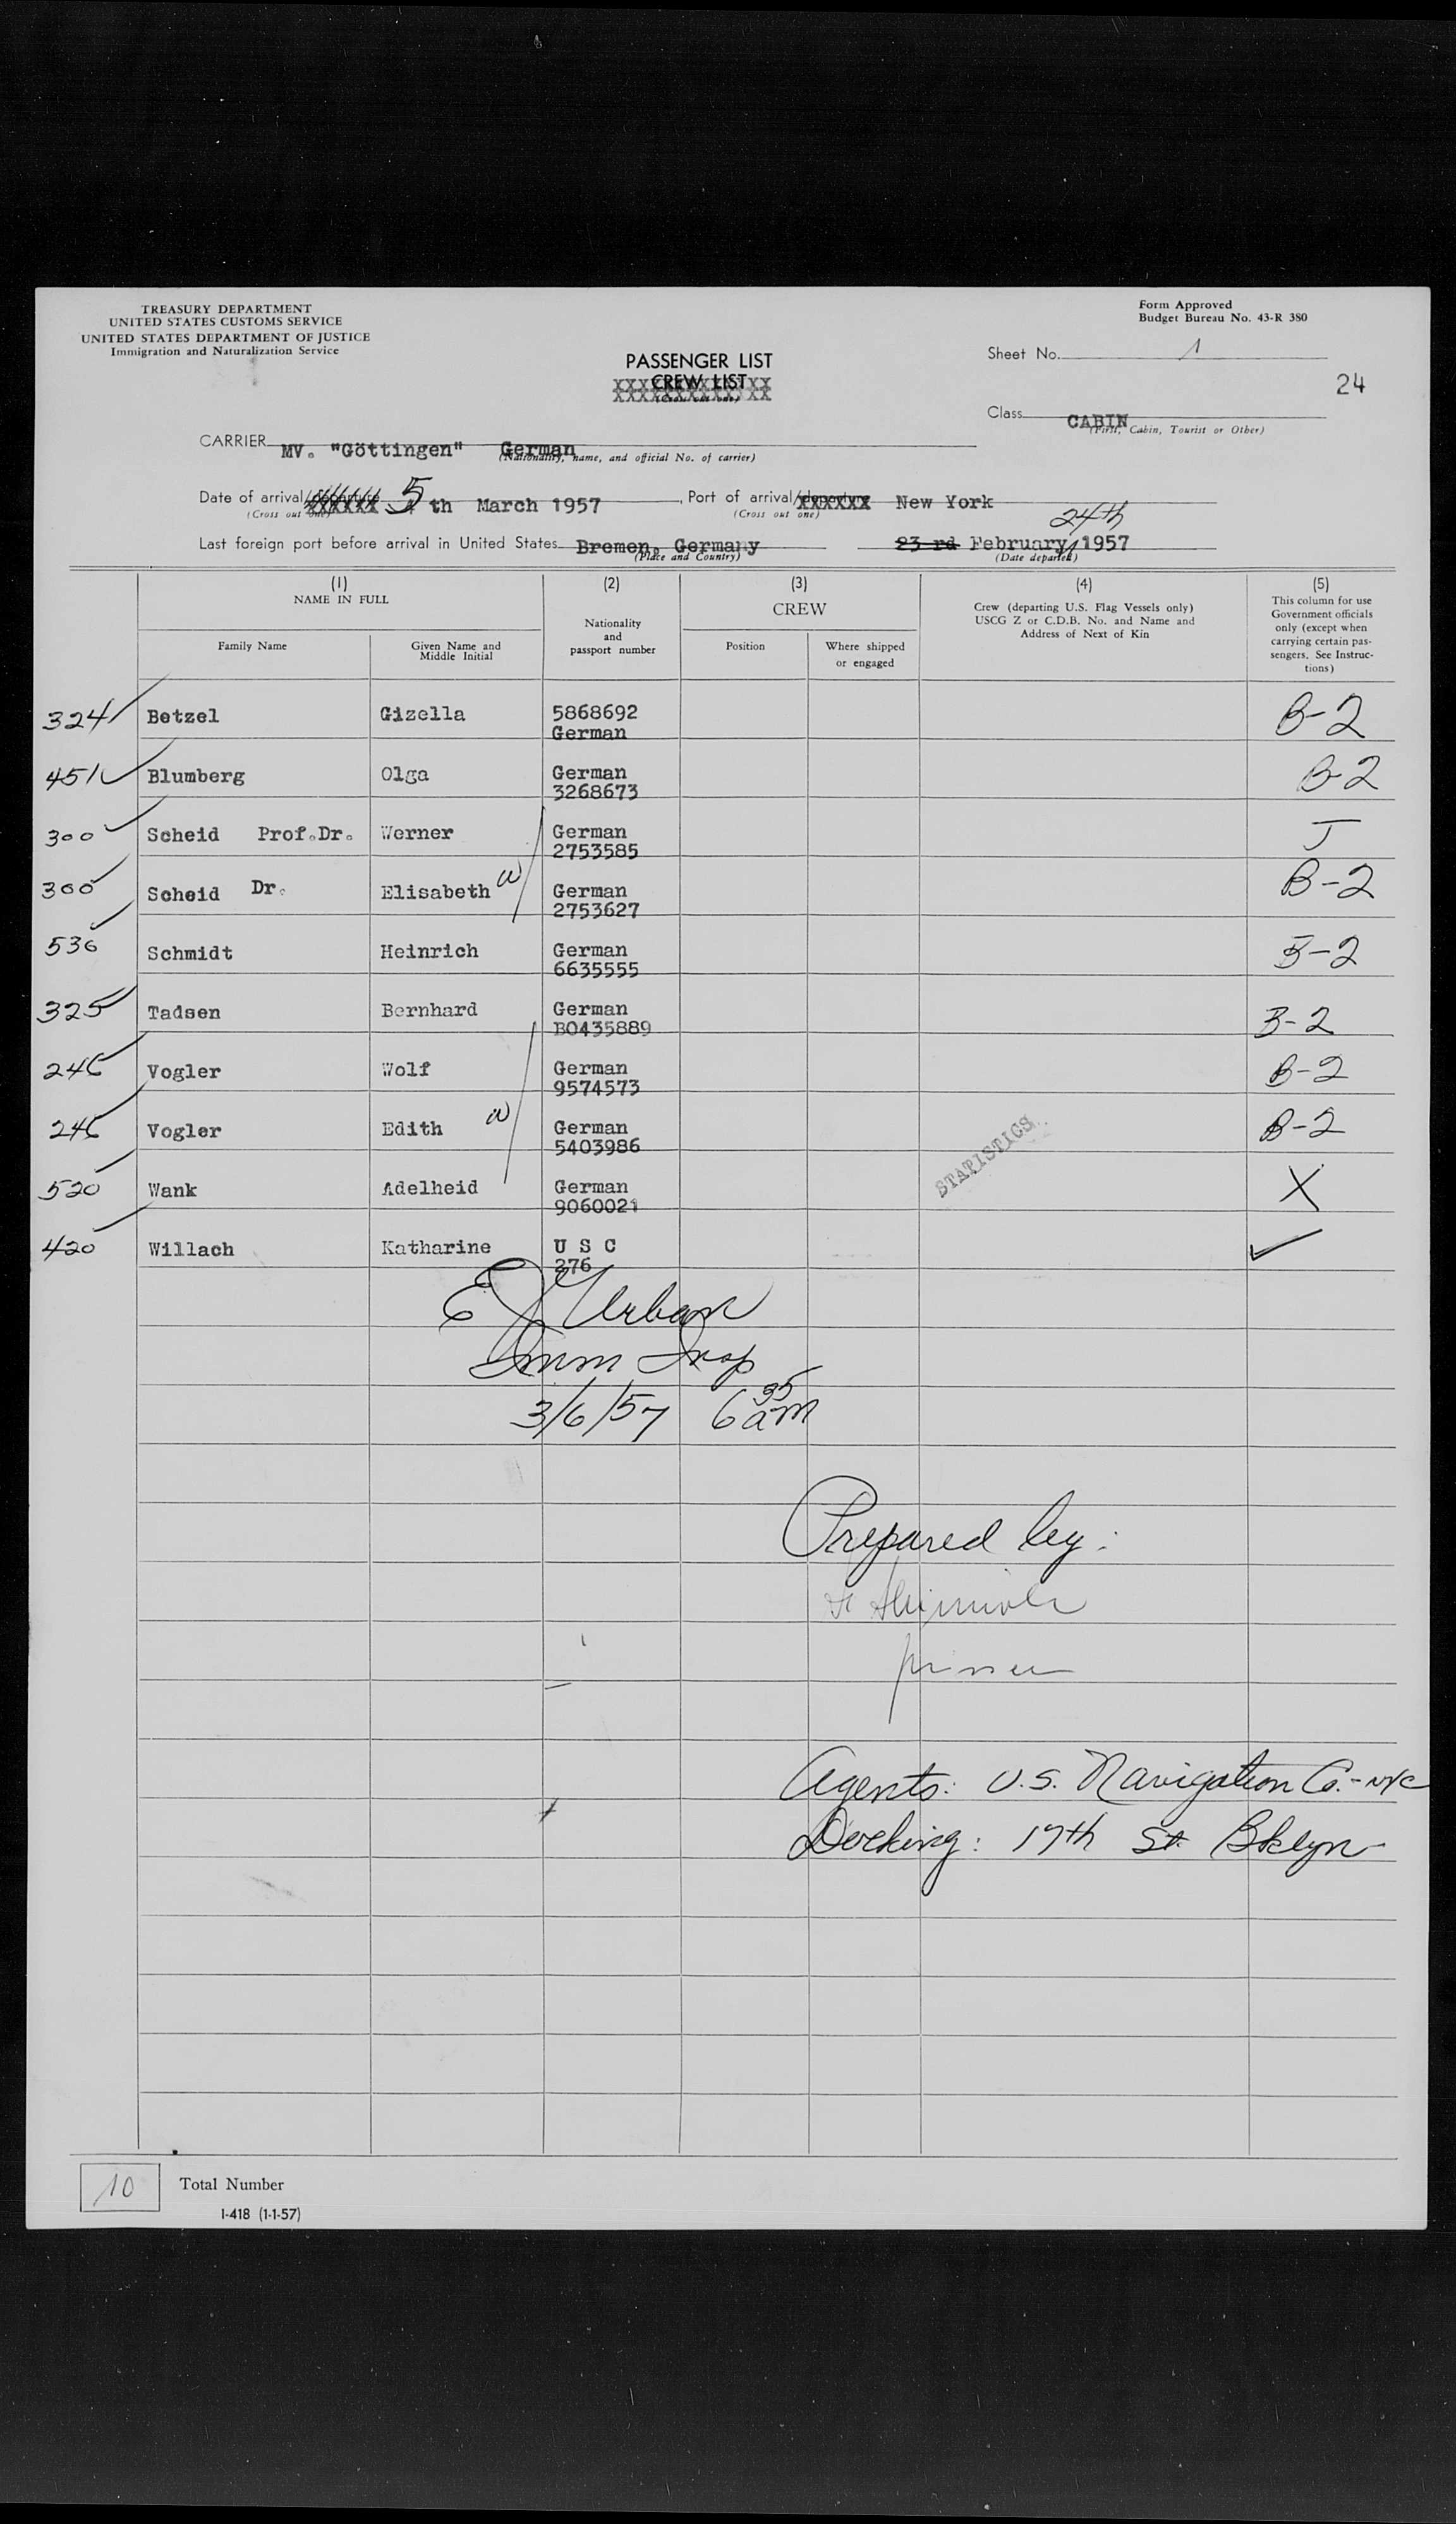 TREASURY DEPARTMENT
UNITED STATES CUSTOMS SERVICE
UNITED STATES DEPARTMENT OF JUSTICE
Immigration and Naturalization Service
Form Approved
Budget Bureau No. 43-R 380
PASSENGER LIST
CREW LIST
(Cross out one)
Sheet No. 1
24
Class CABIN
(First, Cabin, Tourist or Other)
CARRIER MV. "Göttingen" German
(Nationality, name, and official No. of carrier)
Date of arrival/departure 5 th March 1957, Port of arrival/departure New York
(Cross out one) (Cross out one)
24th
Last foreign port before arrival in United States Bremen, Germany 23 rd February 1957
(Place and Country) (Date departed)
(1) (2) (3) (4) (5)
NAME IN FULL
Family Name
Given Name and Middle Initial
Nationality and passport number
CREW
Position
Where shipped or engaged
Crew (departing U.S. Flag Vessels only)
USCG Z or C.D.B. No. and Name and
Address of Next of Kin
This column for use
Government officials
only (except when
carrying certain pas-
sengers. See Instruc-
tions)
324 Betzel Gizella 5868692 B-2
German
451 Blumberg Olga German B-2
3268673
300 Scheid Prof.Dr. Werner German J
2753585
300 Scheid Dr. Elisabeth W German B-2
2753627
536 Schmidt Heinrich German B-2
6635555
325 Tadsen Bernhard German B-2
B0435889
246 Vogler Wolf German B-2
9574573
246 Vogler Edith W German B-2
5403986
STATISTICS
520 Wank Adelheid German X
9060021
420 Willach Katharine U S C
276
E J Urban
Imm Insp
3/6/57 6 35 am
Prepared by:
Agents: U.S. Navigation Co.-NYC
Docking: 17th St. Bklyn
10 Total Number
I-418 (1-1-57)